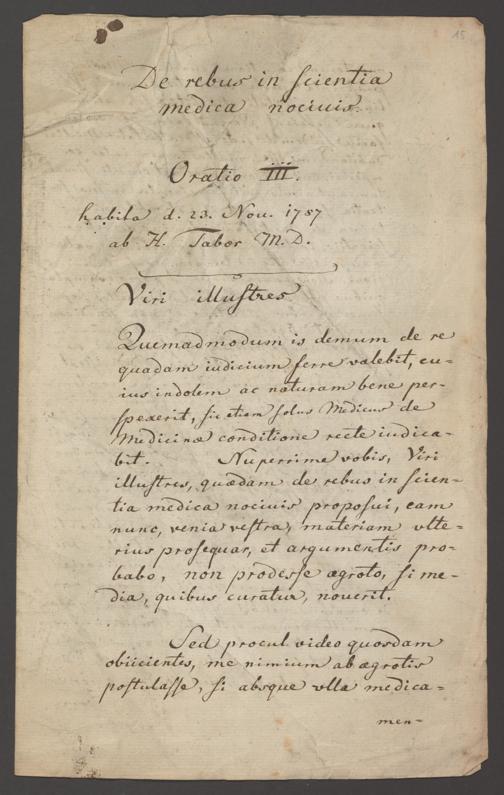 15
De rebus in scientia
medica nociuis.
Oratio III.
habita d. 23. Nou. 1787
ab H. Tabor M. D.
Viri illustres
Quemadmodum is demum de re
quadam iudicium ferre valebit, cu=
ius indolem ac naturam bene per=
spexerit, sic etiam solus Medicus de
Medicinæ conditione recte iudica=
bit. Nuperrime vobis, Viri
illustres, quædam de rebus in scien=
tia medica nociuis proposui, eam
nunc, venia vestra, materiam vlte=
rius prosequar, et argumentis pro=
babo, non prodesse ægroto, si me=
dia, quibus curatur, nouerit.
Sed procul video quosdam
obiicientes, me nimium ab ægrotis
postulasse, si absque vlla medica=
men=